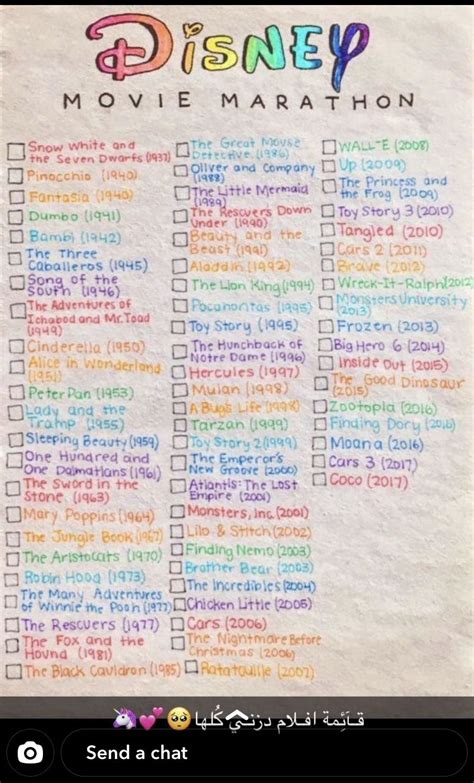 Disney
MOVIE MARATHON
Snow White and
the Seven Dwarfs (1937)
Pinocchio (1940)
Fantasia (1940)
Dumbo (1941)
Bambi (1942)
The Three
Caballeros (1945)
Song of the
South (1946)
The Adventures of
Ichabod and Mr. Toad
(1949)
Cinderella (1950)
Alice in Wonderland
(1951)
Peter Pan (1953)
Lady and the
Tramp (1955)
Sleeping Beauty (1959)
One Hundred and
One Dalmatians (1961)
The Sword in the
Stone (1963)
Mary Poppins (1964)
The Jungle Book (1967)
The Aristocats (1970)
Robin Hood (1973)
The Many Adventures
of Winnie the Pooh (1977)
The Rescuers (1977)
The Fox and the
Hound (1981)
The Black Cauldron (1985)
The Great Mouse
Detective (1986)
Oliver and Company
(1988)
The Little Mermaid
(1989)
The Rescuers Down
Under (1990)
Beauty and the
Beast (1991)
Aladdin (1992)
The Lion King (1994)
Pocahontas (1995)
Toy Story (1995)
The Hunchback of
Notre Dame (1996)
Hercules (1997)
Mulan (1998)
A Bug's Life (1998)
Tarzan (1999)
Toy Story 2 (1999)
The Emperor's
New Groove (2000)
Atlantis: The Lost
Empire (2001)
Monsters, Inc. (2001)
Lilo & Stitch (2002)
Finding Nemo (2003)
Brother Bear (2003)
The Incredibles (2004)
Chicken Little (2005)
Cars (2006)
The Nightmare Before
Christmas (2006)
Ratatouille (2007)
WALL-E (2008)
Up (2009)
The Princess and
the Frog (2009)
Toy Story 3 (2010)
Tangled (2010)
Cars 2 (2011)
Brave (2012)
Wreck-It-Ralph (2012)
Monsters University
(2013)
Frozen (2013)
Big Hero 6 (2014)
Inside Out (2015)
The Good Dinosaur
(2015)
Zootopia (2016)
Finding Dory (2016)
Moana (2016)
Cars 3 (2017)
Coco (2017)
قـآئِمة افـلام دزنـي كُلها🥺💕🦄
Send a chat